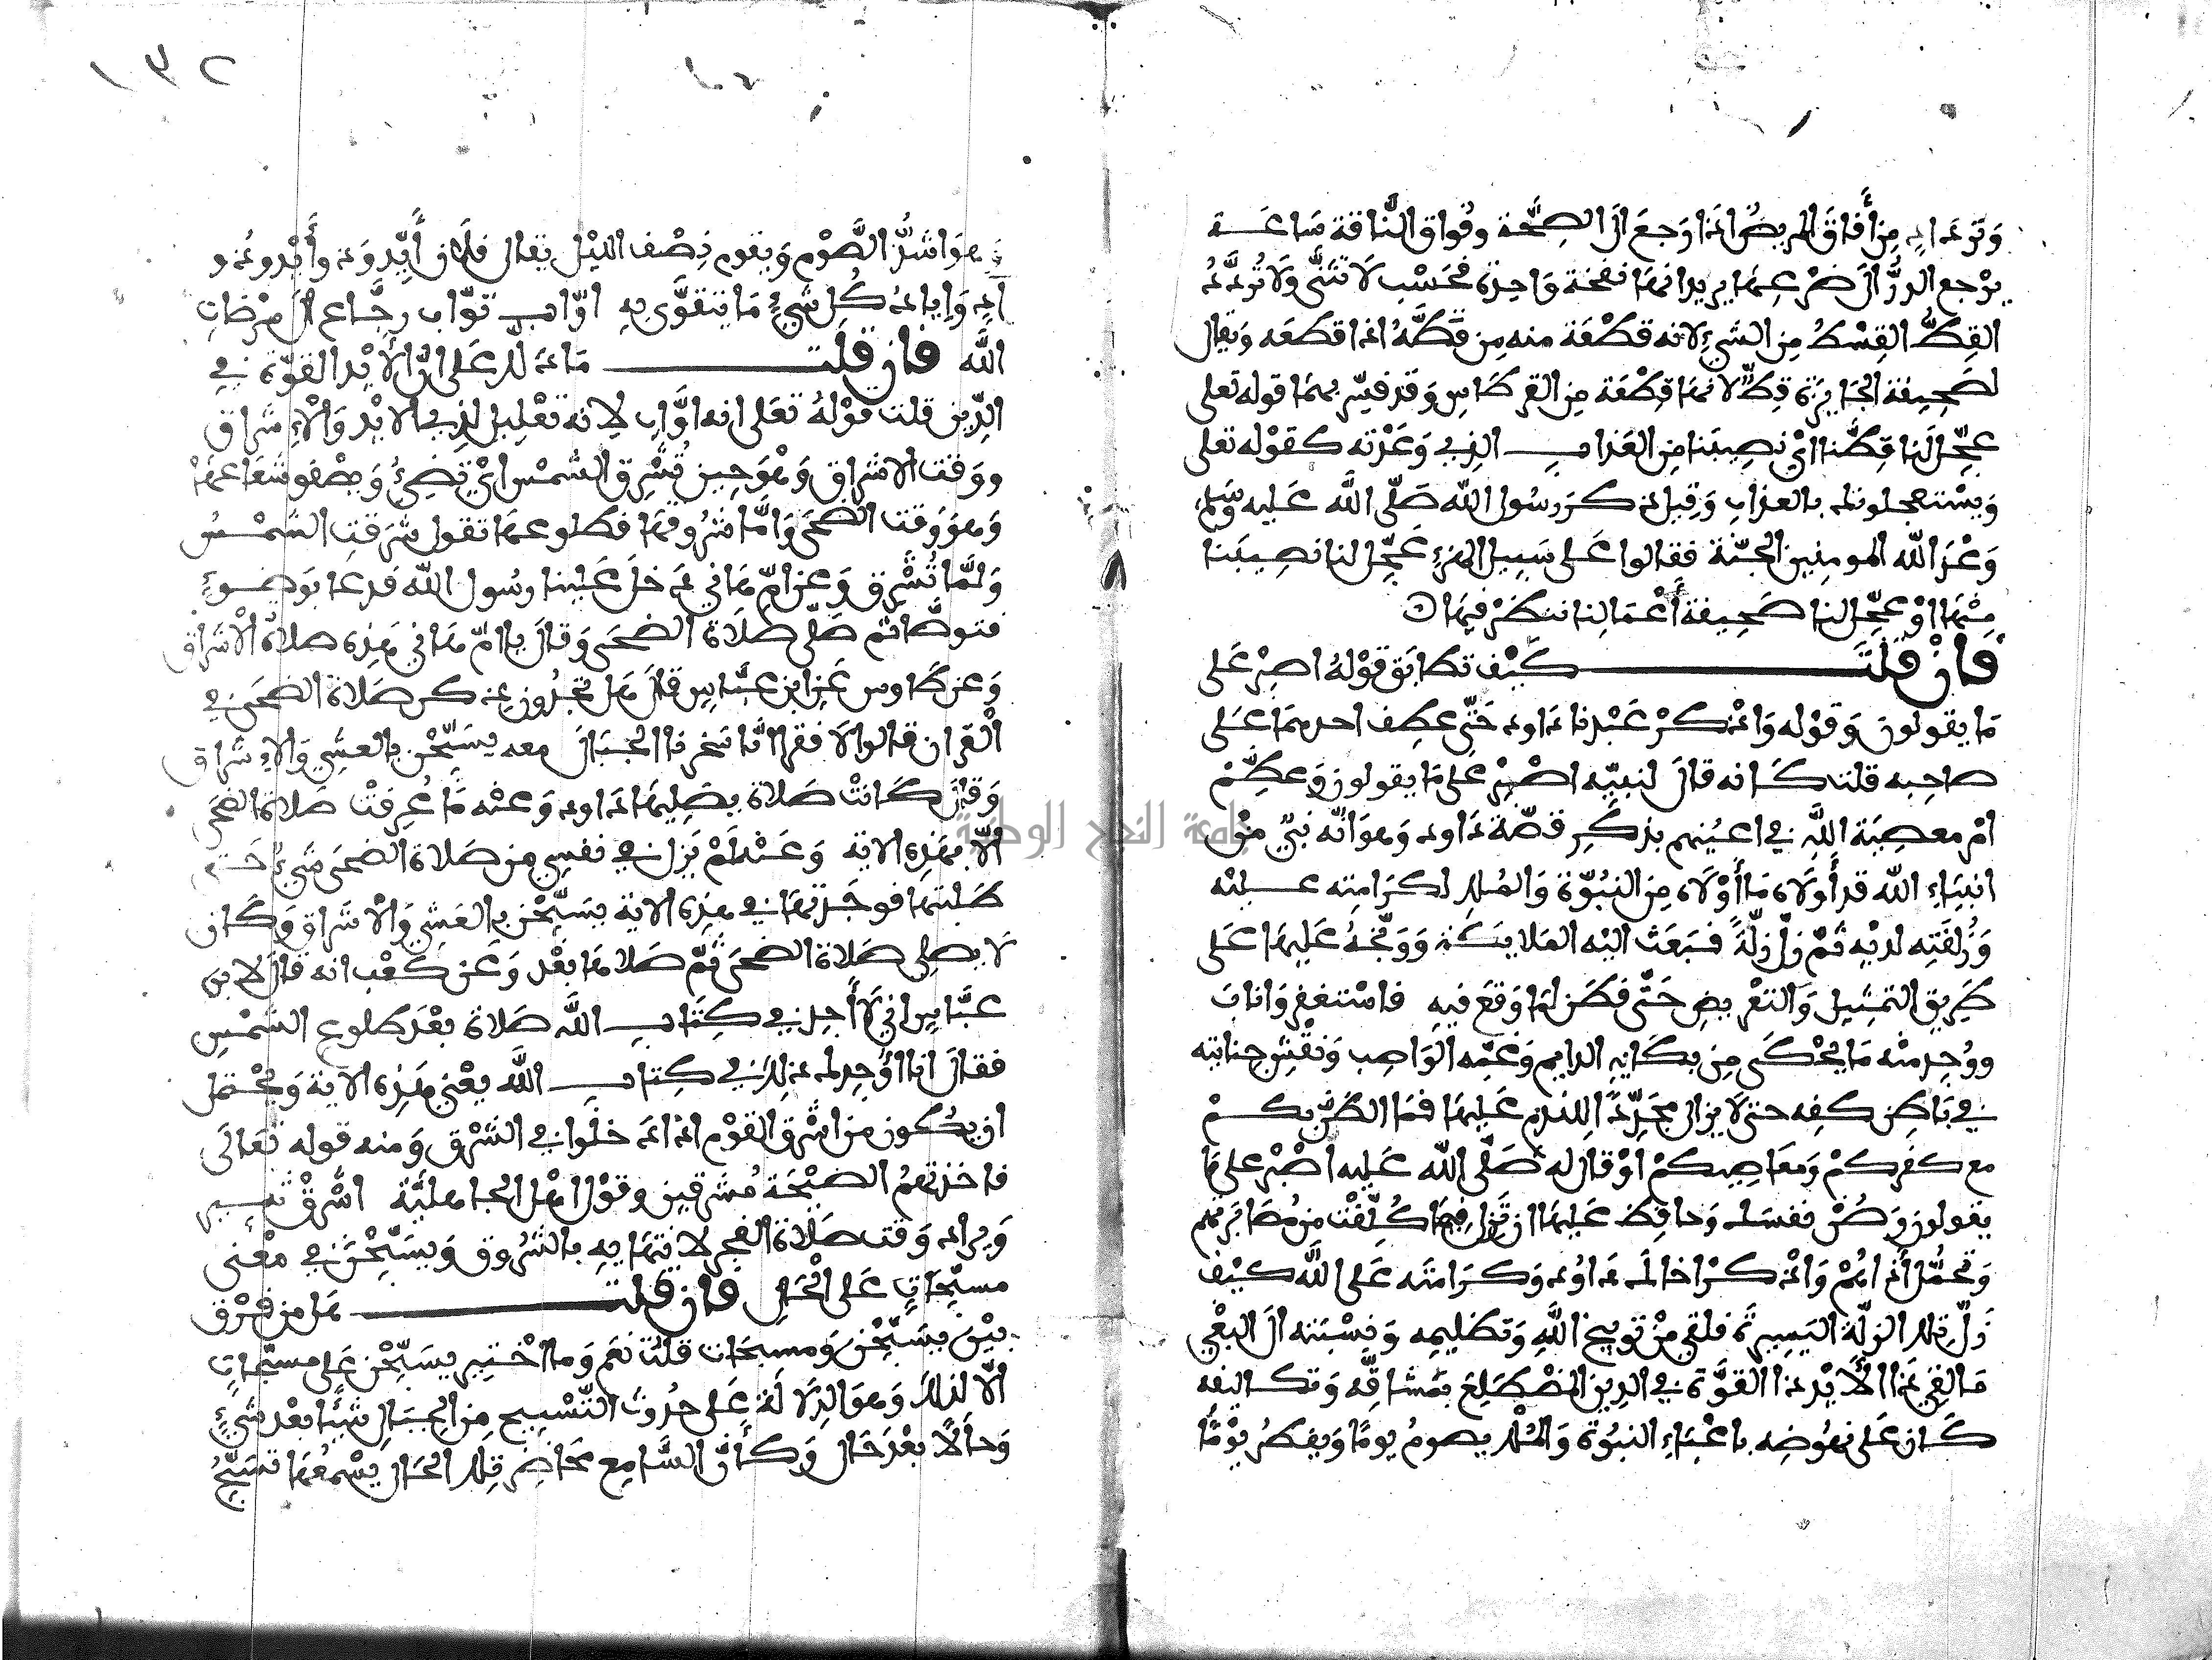 وَتَرْدَادٍ مِن أَفَاقَ المريضُ اذا رَجعَ الَى الصِّحَّة وفُواق النَّاقة سَاعَـة
يرْجع الدرُّ الَى ضرْعِهَا يريد انهَا نفخة وَاحِدة فحَسْب لَا تُثَنَّى وَلَا تُردَّدُ
القِطُّ القِسْطُ مِن الشيءِ لانه قطْعَة منه مِن قَطَّهُ اذا قطعَه وَيقال
لصَحِيفة الجَايزة قِطٌّ لانهَا قِطْعَة مِن القرطَاسِ وَقد فسّر بهمَا قوله تعلى
عجِّل لَنا قِطَّنا ايْ نصِيبَنا مِن العَذاب الذي وَعَدْته كقوْله تعلى
وَيسْتعجلونك بالعذابِ وَقِيل ذكَر رسُول الله صَلَّى اللَّه عَليه وَسَلم
وَعْدَ اللّه المومنِين الجنّة فقالوا عَلى سَبِيل الهزءِ عَجِّل لنا نصِيبَنا
مِنْهَا اوْ عجِّل لنا صَحِيفة أَعْمَالِنا ننظرْ فِيهَا
فإنْ قلتَ كَيْف تطابَق قوْلهُ اصبِرْ عَلى
مَا يقولونَ وَقوْله وَاذْكرْ عَبْدنا دَاود حَتَّى عطِف احدهمَا عَلى
صاحِبه قلت كَانه قالَ لنبيِّه اصْبِرْ على مَا يقولون وَعظِّمْ
امْر معصِيَة اللَّهِ في اعيُنهم بذكْرِ قصّة دَاود وَهوَ انّه نبيٌّ مِنْ
انبيَاءِ اللّه قد أَولَاهُ مَا أَوْلَاهُ مِن النبُوّة وَالمُلك لكَرَامتِه عـليْه
وَزُلفَتِه لديْه ثمَّ زلَّ زلّةً فبَعَث اليْه الملايكة وَوَبَّخهُ عَليهَا عَلى
طَرِيق التمثِيل وَالتعْريضِ حَتَّى فطَن لمَا وَقعَ فيهِ فاسْتغفر وَانابَ
ووُجِد منْه مَا يُحْكَى مِن بكَايهِ الدايم وَغمِّه الوَاصِب وَنقْشِ جِنايته
في بَاطِن كفِه حتى لا يزال مجَدِّدًا للندمِ عَليهَا فمَا الظنُّ بكـمْ
مع كفرِكمْ وَمعَاصِيكمْ اوْ قال له صَلَّى اللّه عَليه اصْبرْ على مَا
يقولون وَصُنْ نفسَك وَحافِظ عَليهَا ان تَزل فيمَا كُلِّفْت من مُصَابَرتهم
وَتحمُّل أَذاهُمْ وَاذكرْ اخاك دَاوُد وَكرَامتَه عَلى اللَّه كيْف
زَلَّ تِلك الزلّة اليَسِيرة فلقي مِنْ توبِيخ اللَّه وَتظليمِه وَنِسْبَته الَى البغْي
مَا لقِي ذَا الْأَيْد ذا القوَّة في الدين المُضْطلِعَ بمَشاقِّه وَتكـاليفه
كَـان عَلى نهُوضِه باعْبَاءِ النبُوة وَالمُلْك يصومُ يومًا وَيفطرُ يوْمًا
وَهوَ اشدُّ الصَّوْم وَيقوم نِصْف الليْل يقال فلَان أَيْد وَذو أَيْد وذو
آد وَايادُ كُل شيْءٍ مَا يتقوَّى بِهِ اوّاب توّاب رجَّاع الَى مرْضاتِ
اللَّه فإن قلتَ مَا دَلك عَلى انَّ الأيْد القوّة في
الدِّين قلت قوْلهُ تعَلى انه اوَّاب لانه تعْلِيل لذِي الايْد وَالْإشراق
ووَقت الاشرَاق وَهْوَ حِين تُشْرِق الشَّمْس ايْ تضِيءُ وَيصْفو شعَاعهَا
وَهوَ وَقت الضحَى وَامَّا شرُوقهَا فطلوعهَا تقول شرَقتِ الشَّمْـسُ
وَلمَّا تُشْرِق وَعن امّ هَاني دَخلَ عَلينا رسُول اللّه فدعَا بوَضـوءٍ
فتوضّا ثم صَلّى صَلَاة الضحَى وَقالَ يا امّ هَاني هَذِه صلاة الْاشرَاق
وَعن طَاوس عَن ابن عبَّاسٍ قالَ هَل تجِدُون ذكر صَلاة الضحَى في
الْقران قالوا لَا فقرا انَّا سَخرنا الجبَالَ معه يسَبِّحْن بالعشِي وَالاشرَاق
وَقالَ كَانتْ صَلاة يصَلِيهَا دَاود وَعنْه مَا عُرِفتْ صَلاة الضحَى
الّا بهَذِه الاية وَعَنْه لَمْ يَزل في نفسِي مِن صَلاة الضحَى شيءٌ حَتى
طَلبتهَا فوجَدتهَا في هذِه الاية يسَبِّحْن بالعَشِي وَالْاشرَاق وَكَان
لَا يصلي صَلاة الضحَى ثمَّ صَلاهَا بعْد وَعَن كعْب انه قالَ لابن
عبَّاسٍ اني لَا أَجد في كتَابِ اللَّه صَلاة بعْد طلوع الشمْسِ
فقالَ انا أُوجِدك ذلِك في كِتابِ اللَّه يعْني هَذِه الاية وَيحْتمل
ان يكُون مِن اشرَق القوْم اذا دَخلُوا في الشرْق وَمنه قوله تعَالَى
فاخذتهمُ الصيْحَة مُشرقِين وقوْل اهْل الجاهليَّة اشْرِقْ ثبـير
وَيرَاد وَقت صَلاة الفجر لانتهَايِهِ بالشرُوق وَيسَبِّحْنَ في معْنى
مسبِّحَاتٍ عَلى الْحَالِ فإن قلتَ هَل من فرْق
بيْن يسَبِّحْن وَمسبحَات قلْت نعَم وَما اخْتِير يسَبِّحْن عَلى مسبِّحَات
الّا لذلك وَهوَ الدلَالَة عَلى حدُوث التّسْبِيح مِن الجِبَال شيْئًا بعْد شيْءٍ
وَحالًا بعْد حَال وَكأنَّ السَّامع محَاضِر تِلك الحَال يَسْمعُهَا تسَبِّحُ